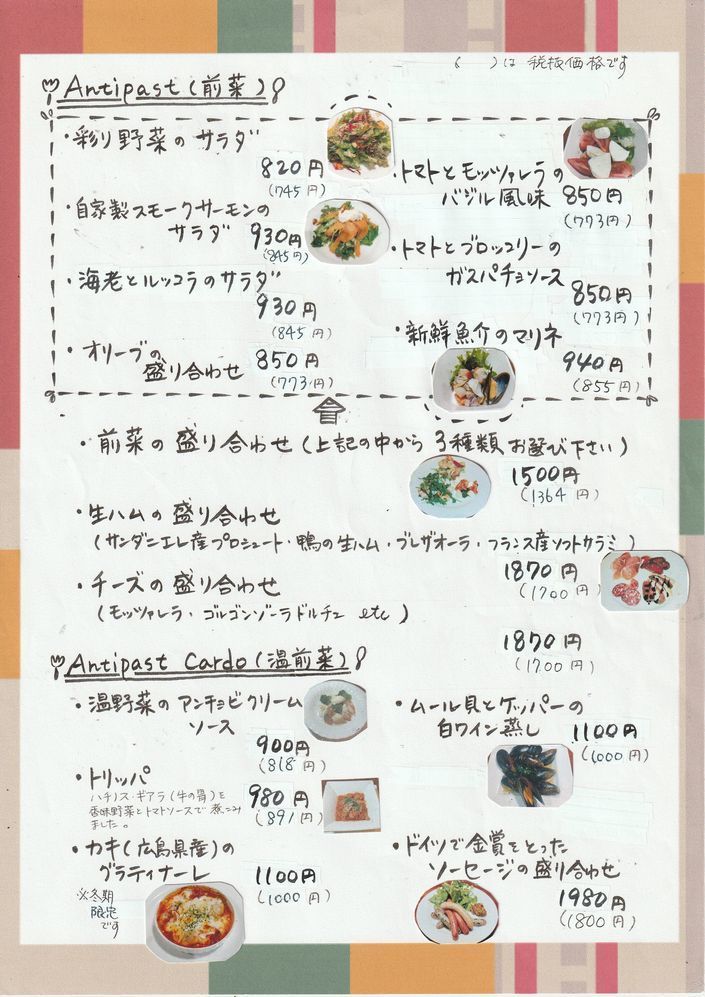 ( )は 税抜価格です
Antipast(前菜)
・彩り野菜のサラダ
820円
(745円)
・自家製スモークサーモンの
サラダ 930円
(845円)
・海老とルッコラのサラダ
930円
(845円)
・オリーブの
盛り合わせ 850円
(773円)
・トマトとモッツァレラの
バジル風味 850円
(773円)
・トマトとブロッコリーの
ガスパチョソース
850円
(773円)
・新鮮魚介のマリネ
940円
(855円)
・前菜の盛り合わせ(上記の中から 3種類お選び下さい)
1500円
(1364円)
・生ハムの盛り合わせ
(サンダニエレ産プロシュート・鴨の生ハム・ブレザオーラ・フランス産ソフトサラミ)
1870円
(1700円)
・チーズの盛り合わせ
(モッツァレラ・ゴルゴンゾーラドルチェ etc)
1870円
(1700円)
Antipast Cardo(温前菜)
・温野菜のアンチョビクリーム
ソース
900円
(818円)
・トリッパ
ハチノス・ギアラ(牛の胃)を
香味野菜とトマトソースで煮こみ
ました。
980円
(891円)
・カキ(広島県産)の
グラティナーレ 1100円
(1000円)
※冬期
限定
です
・ムール貝とケッパーの
白ワイン蒸し 1100円
(1000円)
・ドイツで金賞をとった
ソーセージの盛り合わせ
1980円
(1800円)